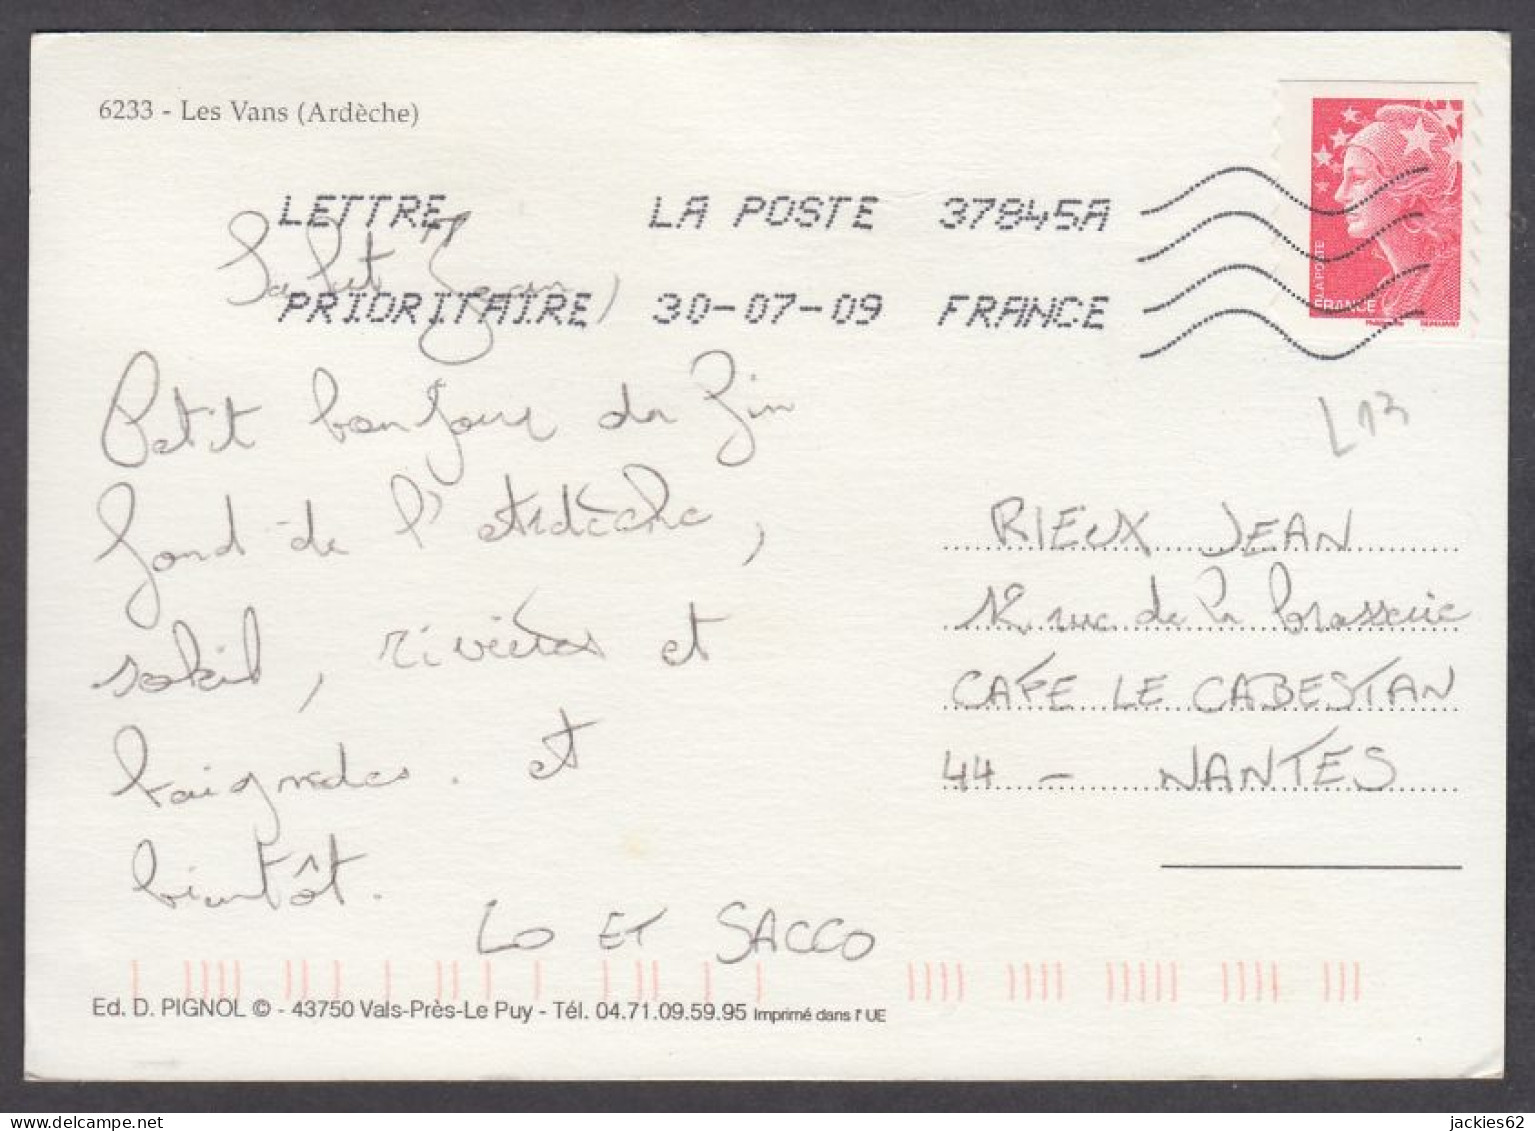 6233 - Les Vans (Ardèche)
LETTRE LA POSTE 37845A
PRIORITAIRE 30-07-09 FRANCE
LA POSTE
FRANCE
Salut Jean,
Petit bonjour du fin
fond de l'Ardèche,
soleil, rivières et
baignades. et
bientôt.
LO ET SACCO
L13
RIEUX JEAN
12 rue de la brasserie
CAFE LE CABESTAN
44 - NANTES
Ed. D. PIGNOL © - 43750 Vals-Près-Le Puy - Tél. 04.71.09.59.95 Imprimé dans l'UE
jackies62